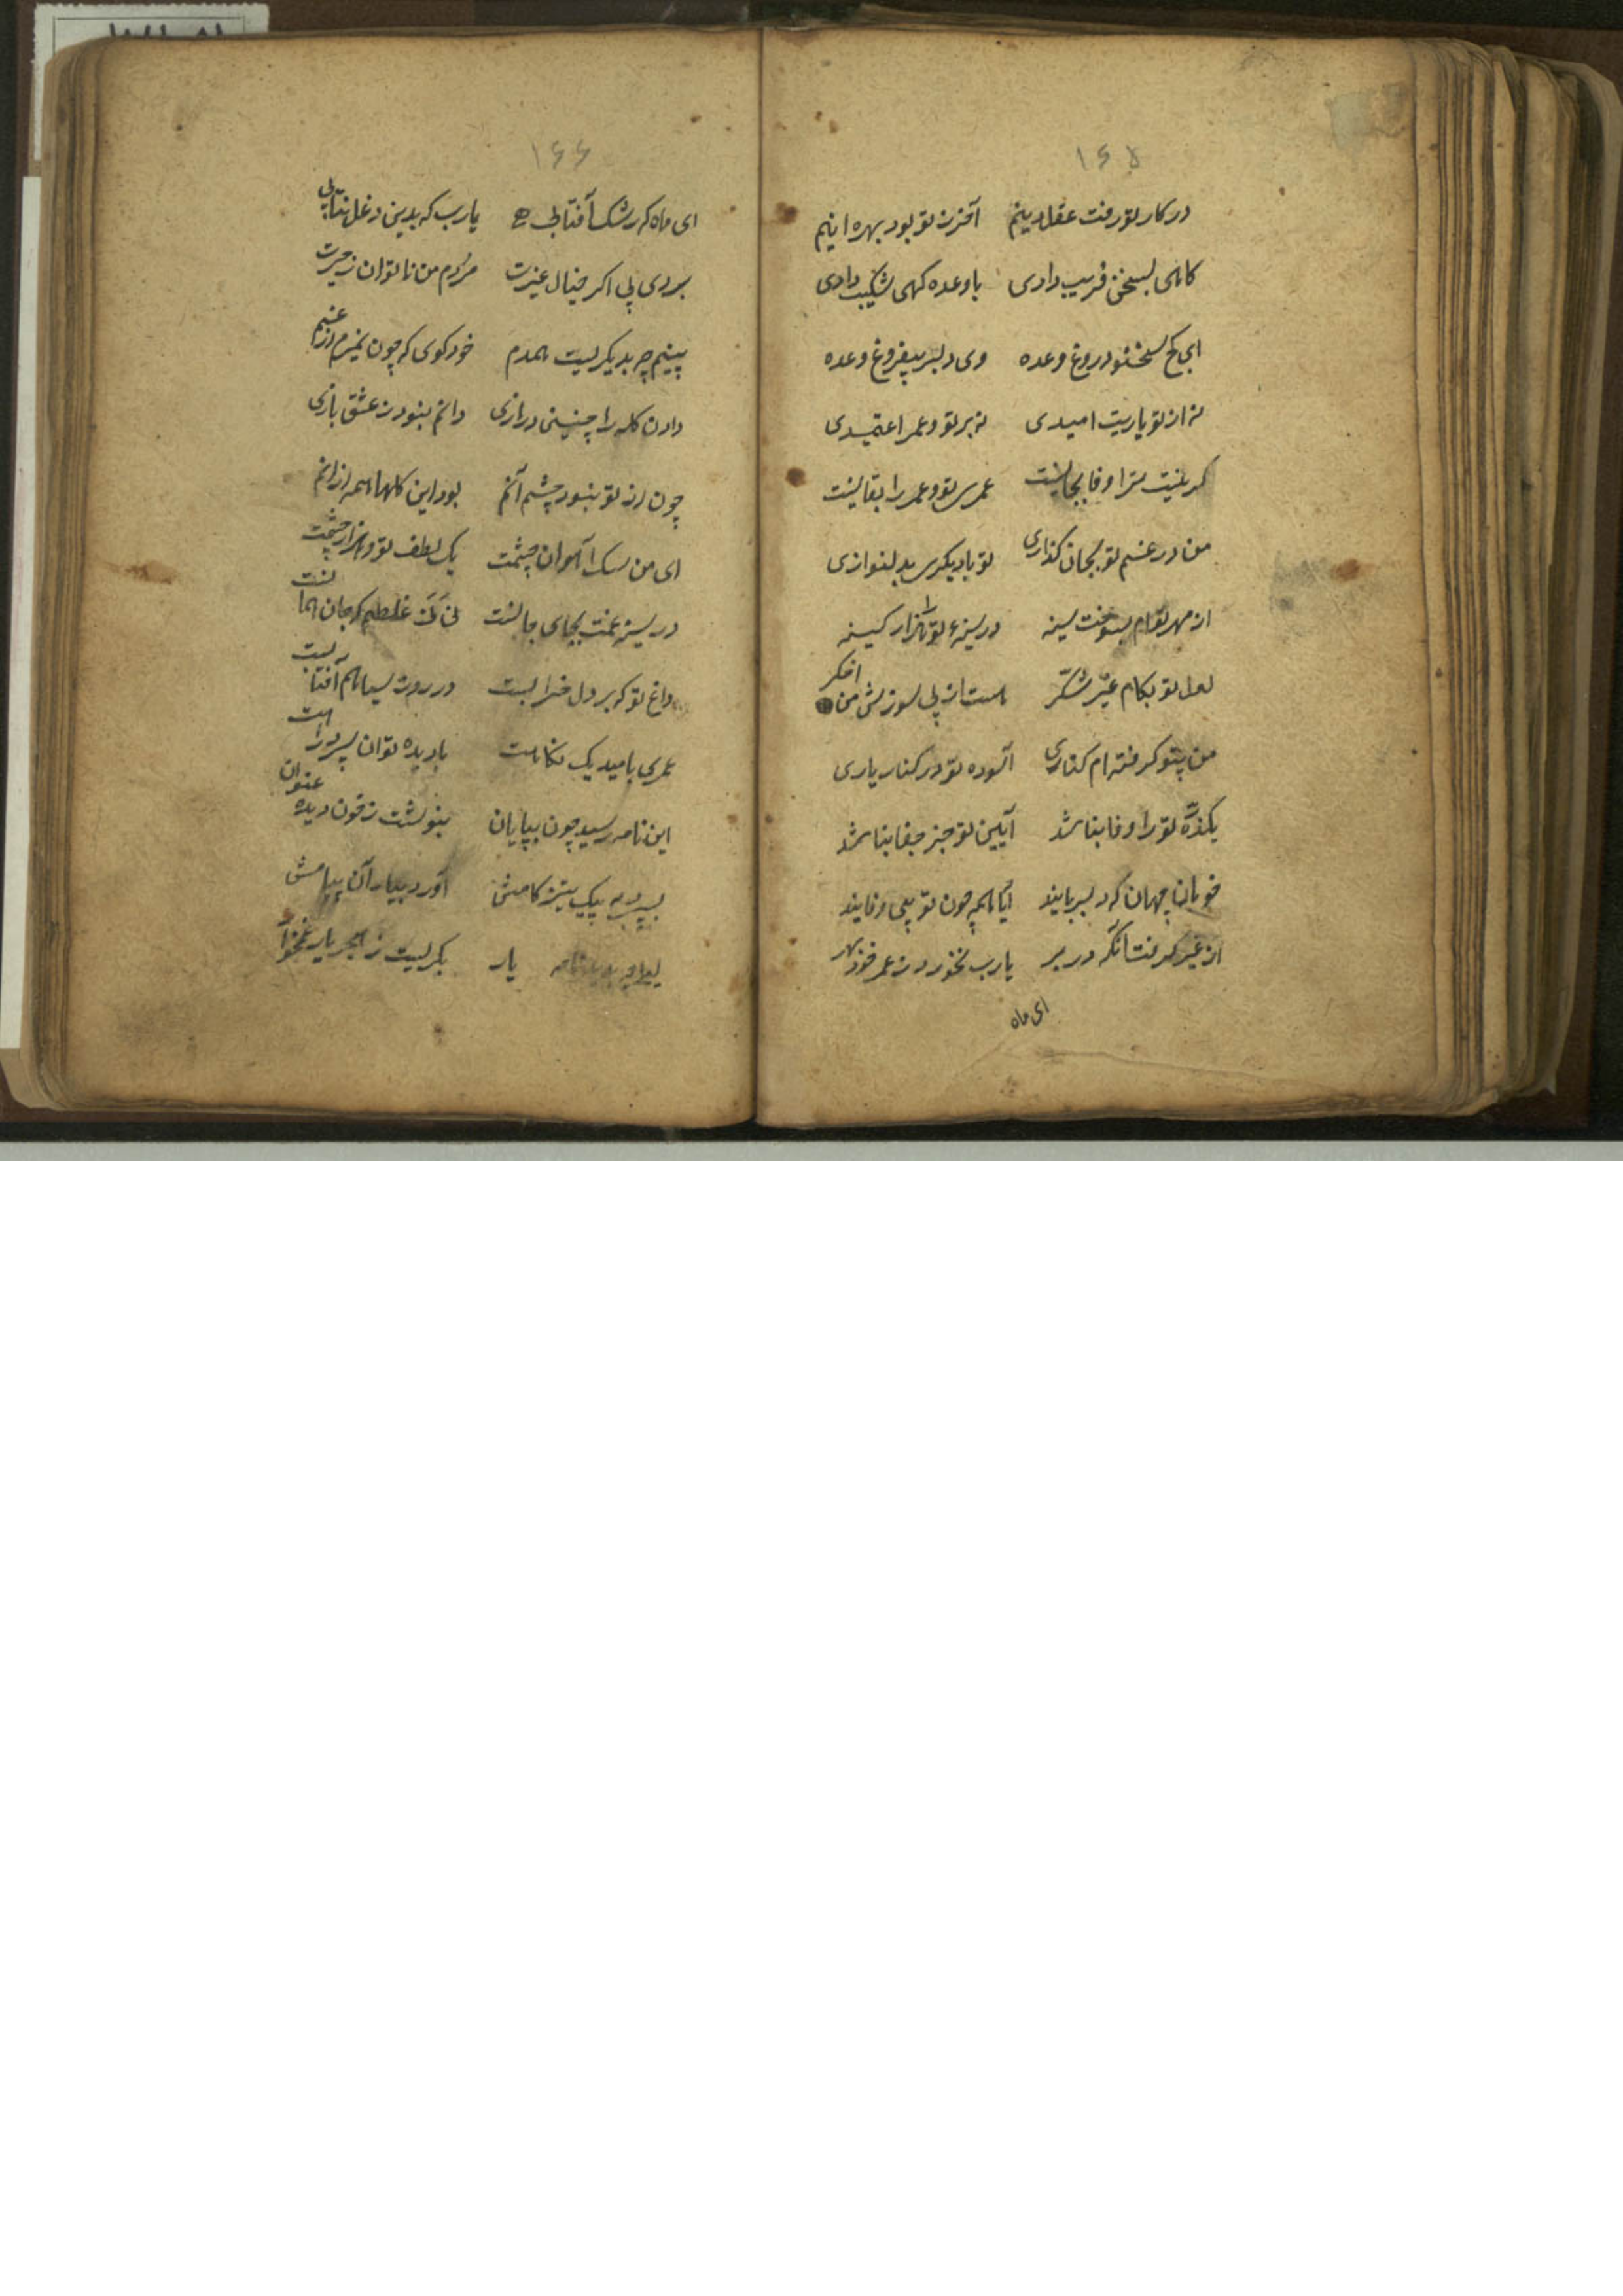 ۱۶۵
در کار تو رفت عقل و دینم آخر ز تو بود بهره اینم
کاهی بسخن فریب دادی با وعده کهی شکیب دادی
ای کج سخن و دروغ وعده وی دلبر بیفروغ وعده
نه از تو یاریت امیدی نه بر تو و عمر اعتمیدی
کر نیست ترا وفا بجا نیست عمری تو و عمر را بقا نیست
من در غم تو بجان کذاری تو با دیکری بدلنوازی
از مهر تو ام بسوخت سینه در سینهٔ تو هزار کینه
لعل تو بکام غیر شکّر هست از پی سوزش من اخکر
من بتو کرفته ام کناری آسوده تو در کنار یاری
یکذرّه تو را وفا نباشد آیین تو جز جفا نباشد
خوبان جهان که دلربایند آیا همه چون تو بی وفایند
از غیر در بر یارب نخورد ز عمر خود بر
ای ماه
۱۶۶
ای ماه که رشک آفتابی یارب که بدین دغل نتابی
بردی پی اکر خیال غیرت مردم من ناتوان ز حیرت
بینم چو بدیکریت همدم خود کوی که چون نمیرم از غم
دادن کله را چنین درازی دانم نبود ز عشق بازی
چون از تو نبود چشم آنم بود این کلها همه از آنم
ای من سک آهوان چشمت یک لطف تو و هزار چشمت
در سینه غمت بجای جانست نی نی غلطم که جان همانست
داغ تو که بر دل خرابست در روز سیاهم آفتابست
عمری بامید یک نکاهت با دیده توان سپرد راهت
این نامه رسید چون بپایان بنوشت ز خون دیده عنوان
بسپرد به پیک تیز کامش آورد بیار آن پیامش
یار بکریست ز هجر یار غمخوار